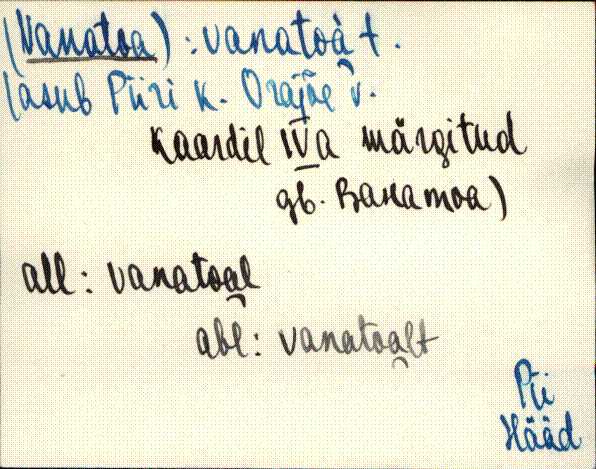 (Vanatoa) : vanatoàt.
(asub Piiri k. Orajõe v.
kaardil IVa märgitud
gb. Ванатоа)
all : vanatoal
abl : vanatoalt
Pii
Hääd